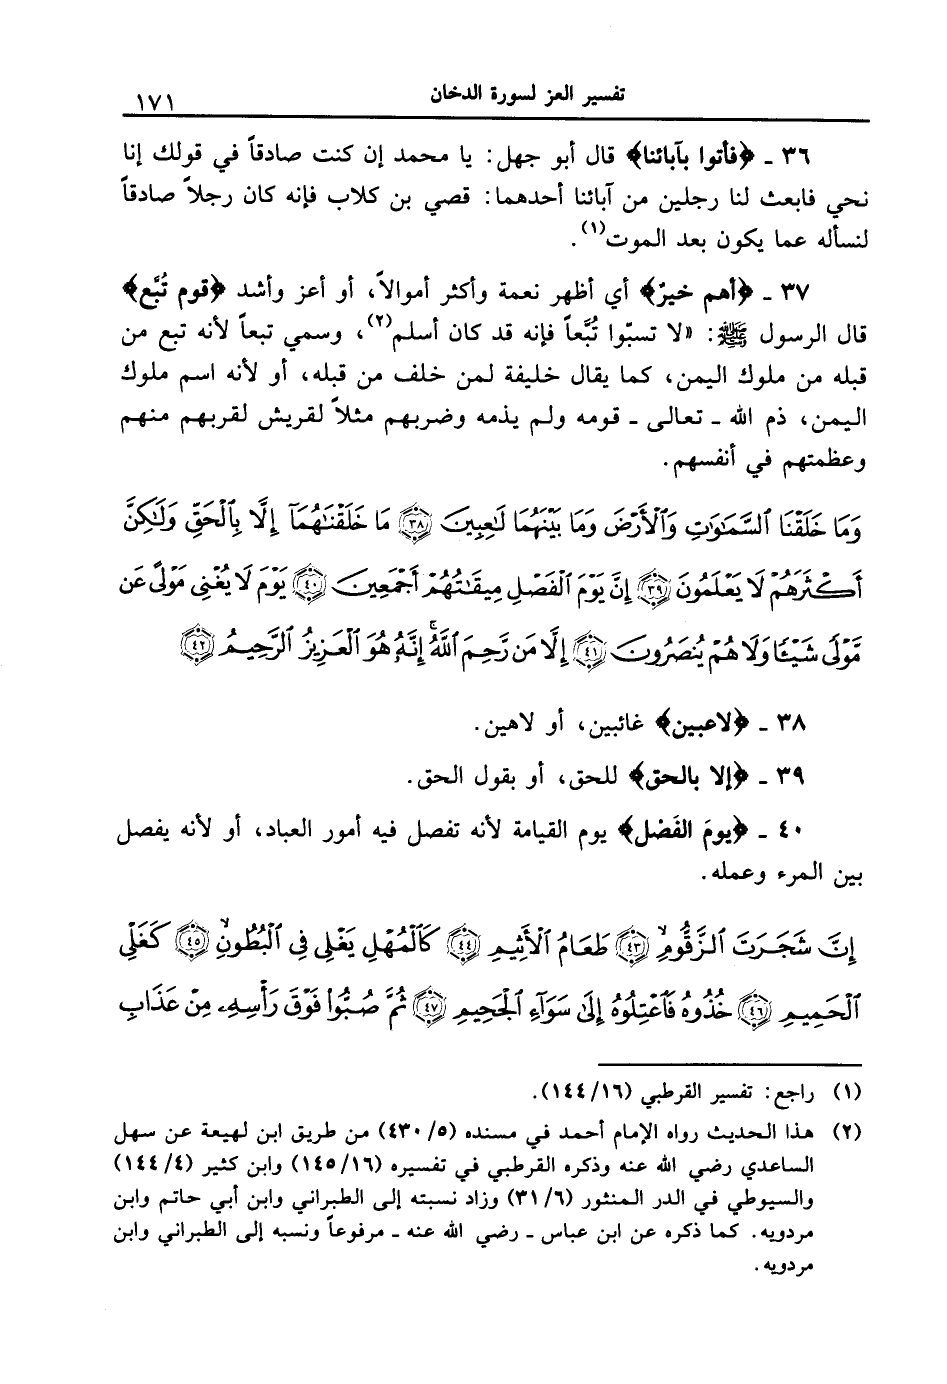 تفسير العز لسورة الدخان
١٧١
٣٦ ـ ﴿فأتوا بآبائنا﴾ قال أبو جهل: يا محمد إن كنت صادقاً في قولك إنا
نحي فابعث لنا رجلين من آبائنا أحدهما: قصي بن كلاب فإنه كان رجلاً صادقاً
لنسأله عما يكون بعد الموت(١).
٣٧ ـ ﴿أهم خيرٌ﴾ أي أظهر نعمة وأكثر أموالاً، أو أعز وأشد ﴿قوم تُبَّع﴾
قال الرسول ﷺ: «لا تسبّوا تُبَّعاً فإنه قد كان أسلم(٢)، وسمي تبعاً لأنه تبع من
قبله من ملوك اليمن، كما يقال خليفة لمن خلف من قبله، أو لأنه اسم ملوك
اليمن، ذم الله ـ تعالى ـ قومه ولم يذمه وضربهم مثلاً لقريش لقربهم منهم
وعظمتهم في أنفسهم.
وَمَا خَلَقْنَا ٱلسَّمَٰوَٰتِ وَٱلْأَرْضَ وَمَا بَيْنَهُمَا لَٰعِبِينَ ٣٨ مَا خَلَقْنَٰهُمَآ إِلَّا بِٱلْحَقِّ وَلَٰكِنَّ
أَكْثَرَهُمْ لَا يَعْلَمُونَ ٣٩ إِنَّ يَوْمَ ٱلْفَصْلِ مِيقَٰتُهُمْ أَجْمَعِينَ ٤٠ يَوْمَ لَا يُغْنِى مَوْلًى عَن
مَّوْلًى شَيْـًٔا وَلَا هُمْ يُنصَرُونَ ٤١ إِلَّا مَن رَّحِمَ ٱللَّهُ إِنَّهُۥ هُوَ ٱلْعَزِيزُ ٱلرَّحِيمُ ٤٢
٣٨ ـ ﴿لاعبين﴾ غائبين، أو لاهين.
٣٩ ـ ﴿إلا بالحق﴾ للحق، أو بقول الحق.
٤٠ ـ ﴿يومَ الفَصْل﴾ يوم القيامة لأنه تفصل فيه أمور العباد، أو لأنه يفصل
بين المرء وعمله.
إِنَّ شَجَرَتَ ٱلزَّقُّومِ ٤٣ طَعَامُ ٱلْأَثِيمِ ٤٤ كَٱلْمُهْلِ يَغْلِى فِى ٱلْبُطُونِ ٤٥ كَغَلْىِ
ٱلْحَمِيمِ ٤٦ خُذُوهُ فَٱعْتِلُوهُ إِلَىٰ سَوَآءِ ٱلْجَحِيمِ ٤٧ ثُمَّ صُبُّوا۟ فَوْقَ رَأْسِهِۦ مِنْ عَذَابِ
(١) راجع: تفسير القرطبي (١٤٤/١٦).
(٢) هذا الحديث رواه الإمام أحمد في مسنده (٤٣٠/٥) من طريق ابن لهيعة عن سهل
الساعدي رضي الله عنه وذكره القرطبي في تفسيره (١٤٥/١٦) وابن كثير (١٤٤/٤)
والسيوطي في الدر المنثور (٣١/٦) وزاد نسبته إلى الطبراني وابن أبي حاتم وابن
مردويه. كما ذكره عن ابن عباس ـ رضي الله عنه ـ مرفوعاً ونسبه إلى الطبراني وابن
مردويه.